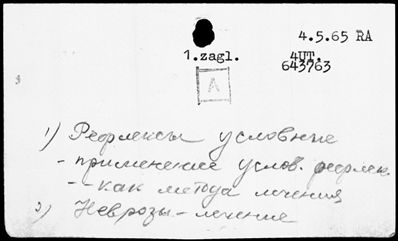 4.5.65 RA
1.zagl. 4UT.
643763
A
1) Рефлексы условные
- применение услов. рефлек.
- как метода лечения
2) Неврозы - лечение